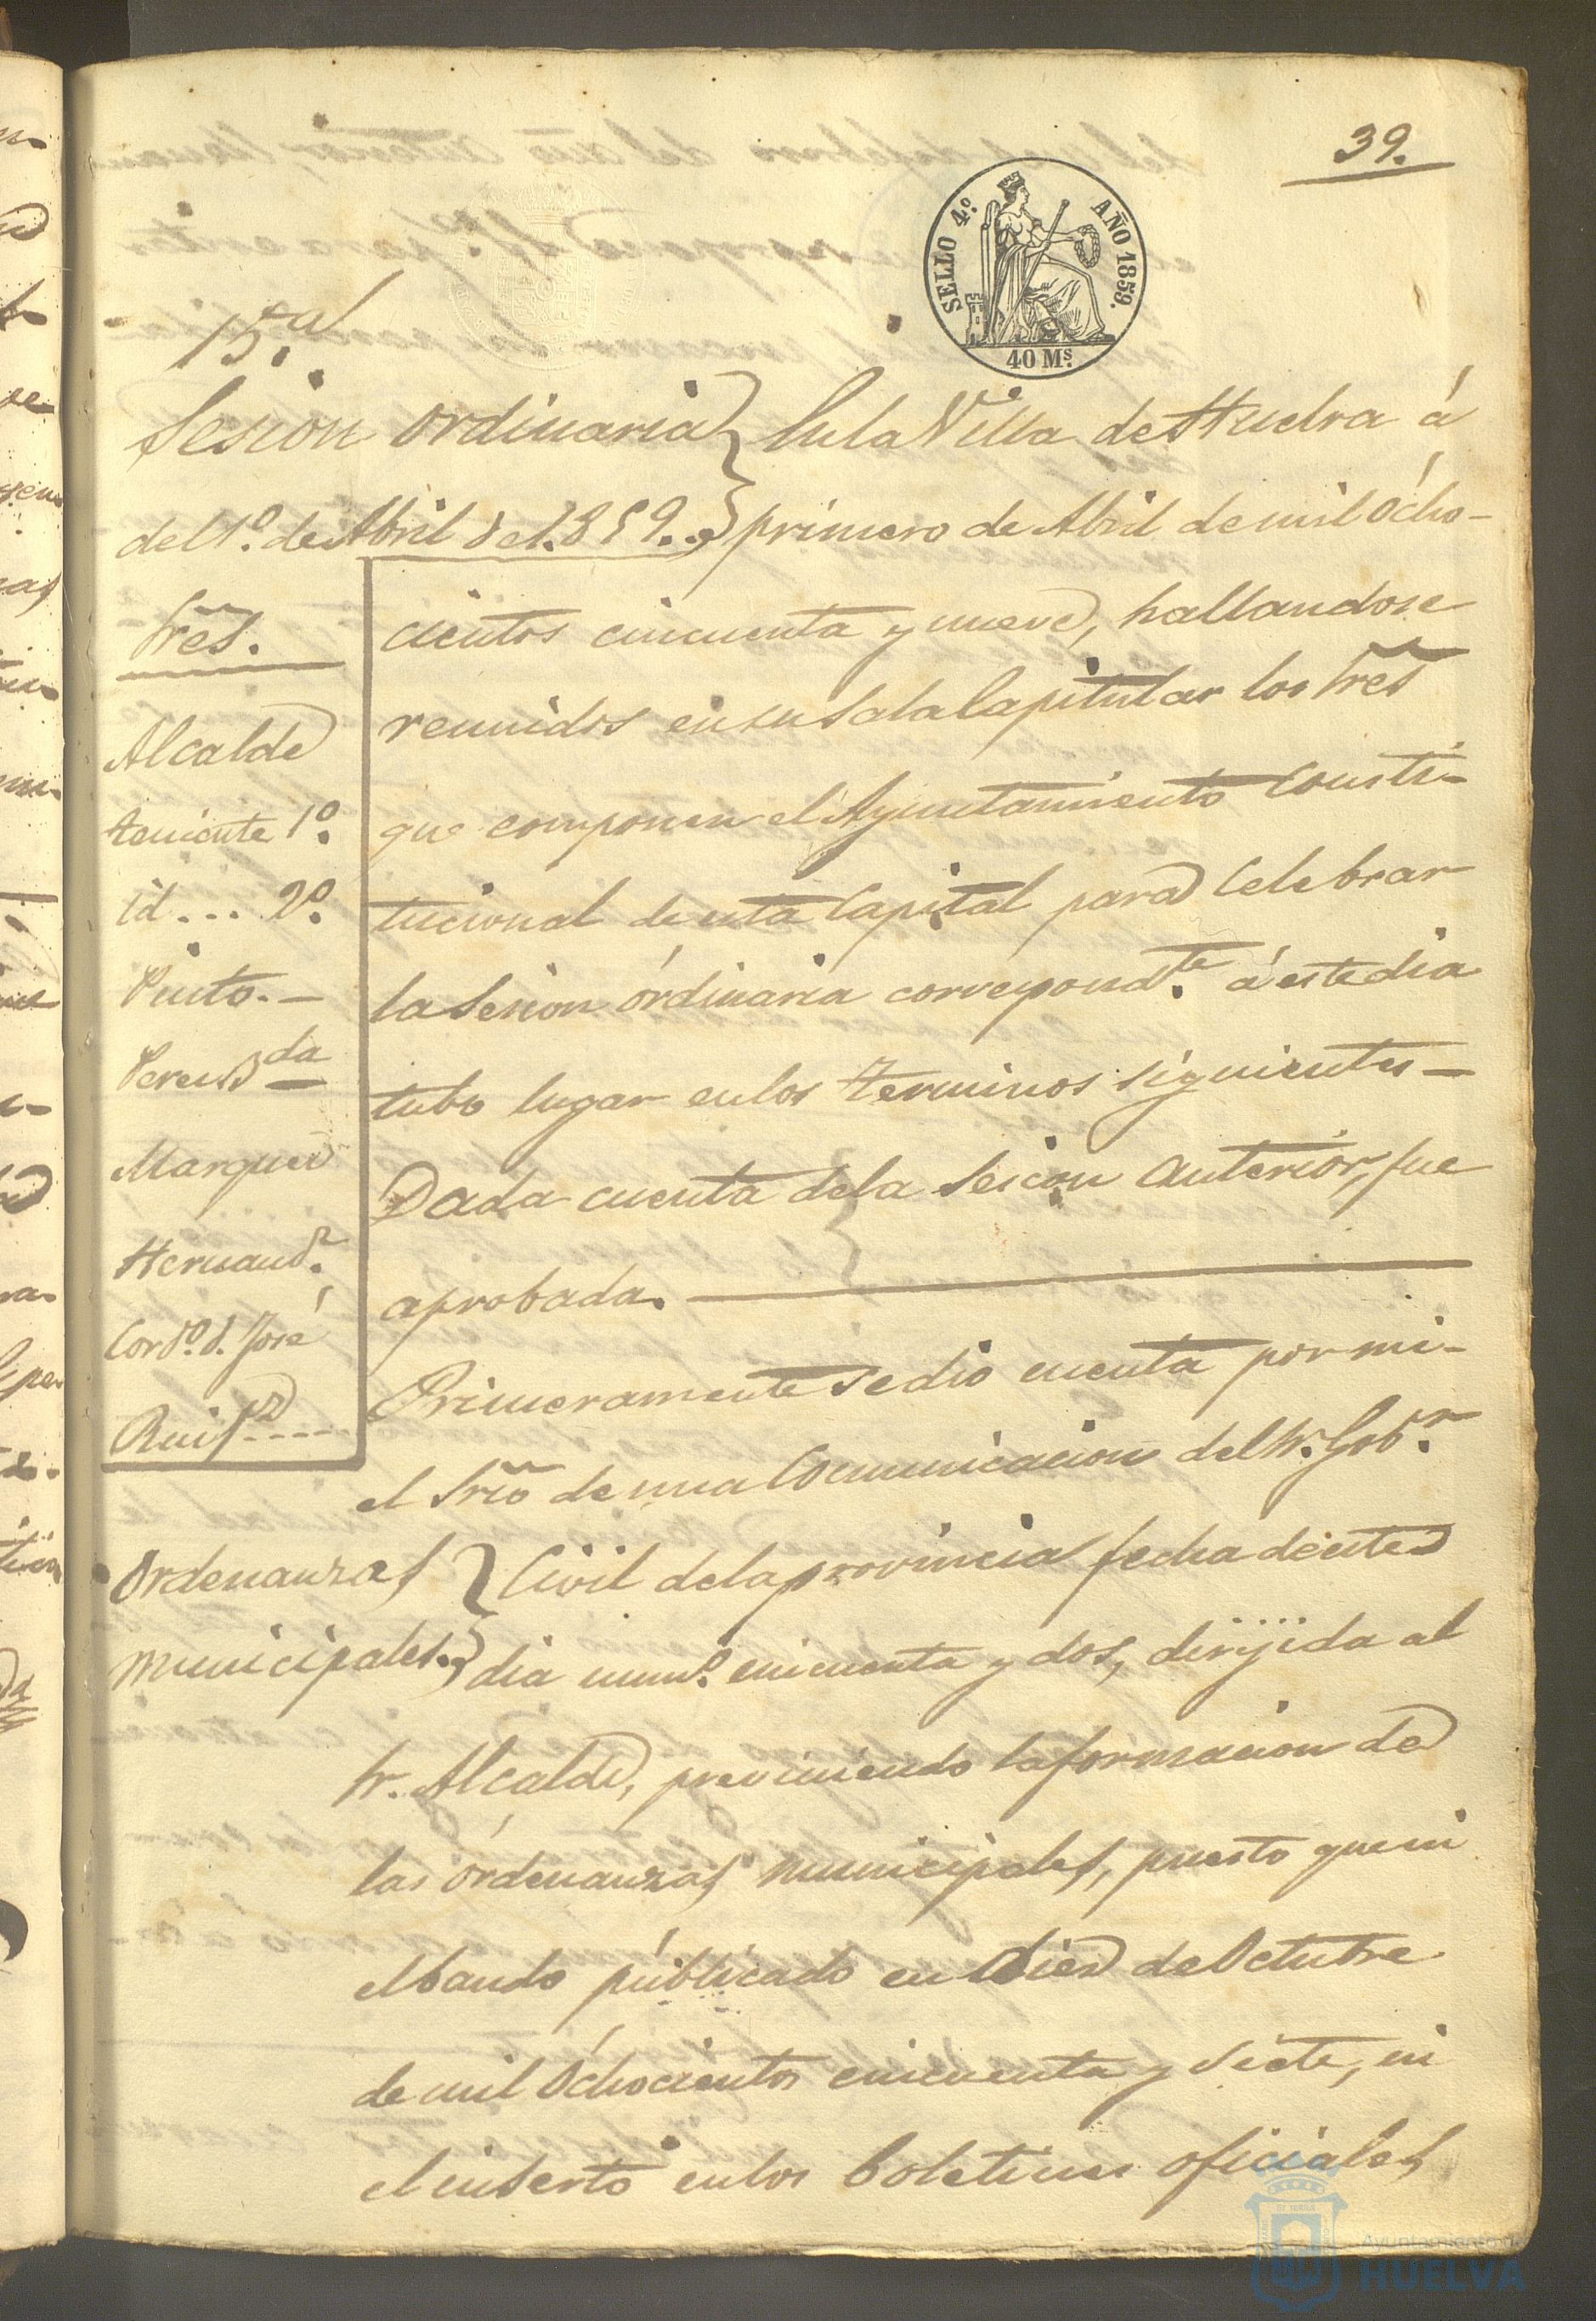 39.
SELLO 4º. AÑO 1859.
40 Ms.
15.ª
Sesion ordinaria
del 1º. de Abril del 1859.
Sres.
Alcalde
teniente 1º.
id... 2º.
Pinto.-
Marquez
Hernandz.
Cordº. d. José
Ruifz....
En la Villa de Huelva á
primero de Abril de mil ócho-
cientos cincuenta y nueve, hallandose
reunidos en su Sala Capitular los Sres
que componen el Ayuntamiento Consti-
tucional de esta Capital para Celebrar
la Sesion órdinaria correspondte. á este dia
tubo lugar en los terminos siguientes-
Dada cuenta dela Sesion anterior, fue
aprobada.
Primeramente se dio cuenta por mi-
el Srio de una Comunicacion del Sr. Gobr.
Ordenanzas
municipales.
Civil dela provincia fecha de este
dia numº. cincuenta y dos, dirijida al
Sr. Alcalde, previniendo la formacion de
las órdenanzas municipales, puesto que ni
el bando públicado en diez de Octubre
de mil óchocientos cincuenta y siete, ni
el inserto en los boletines oficiales
Ayuntamiento de
HUELVA